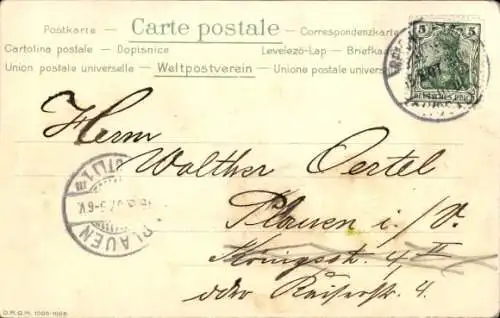 Postkarte - Carte postale - Correspondenzkarte
Cartolina postale - Dopisnice Levelező-Lap - Briefkaa
Union postale universelle - Weltpostverein - Unione postale univers
5 5
DEUTSCHES REICH
Herrn
Walther Oertel
Plauen i./V.
Königsstr. 4, II
oder Kaiserstr. 4.
PLAUEN
(VOGTL) 1
D.R.G.M.